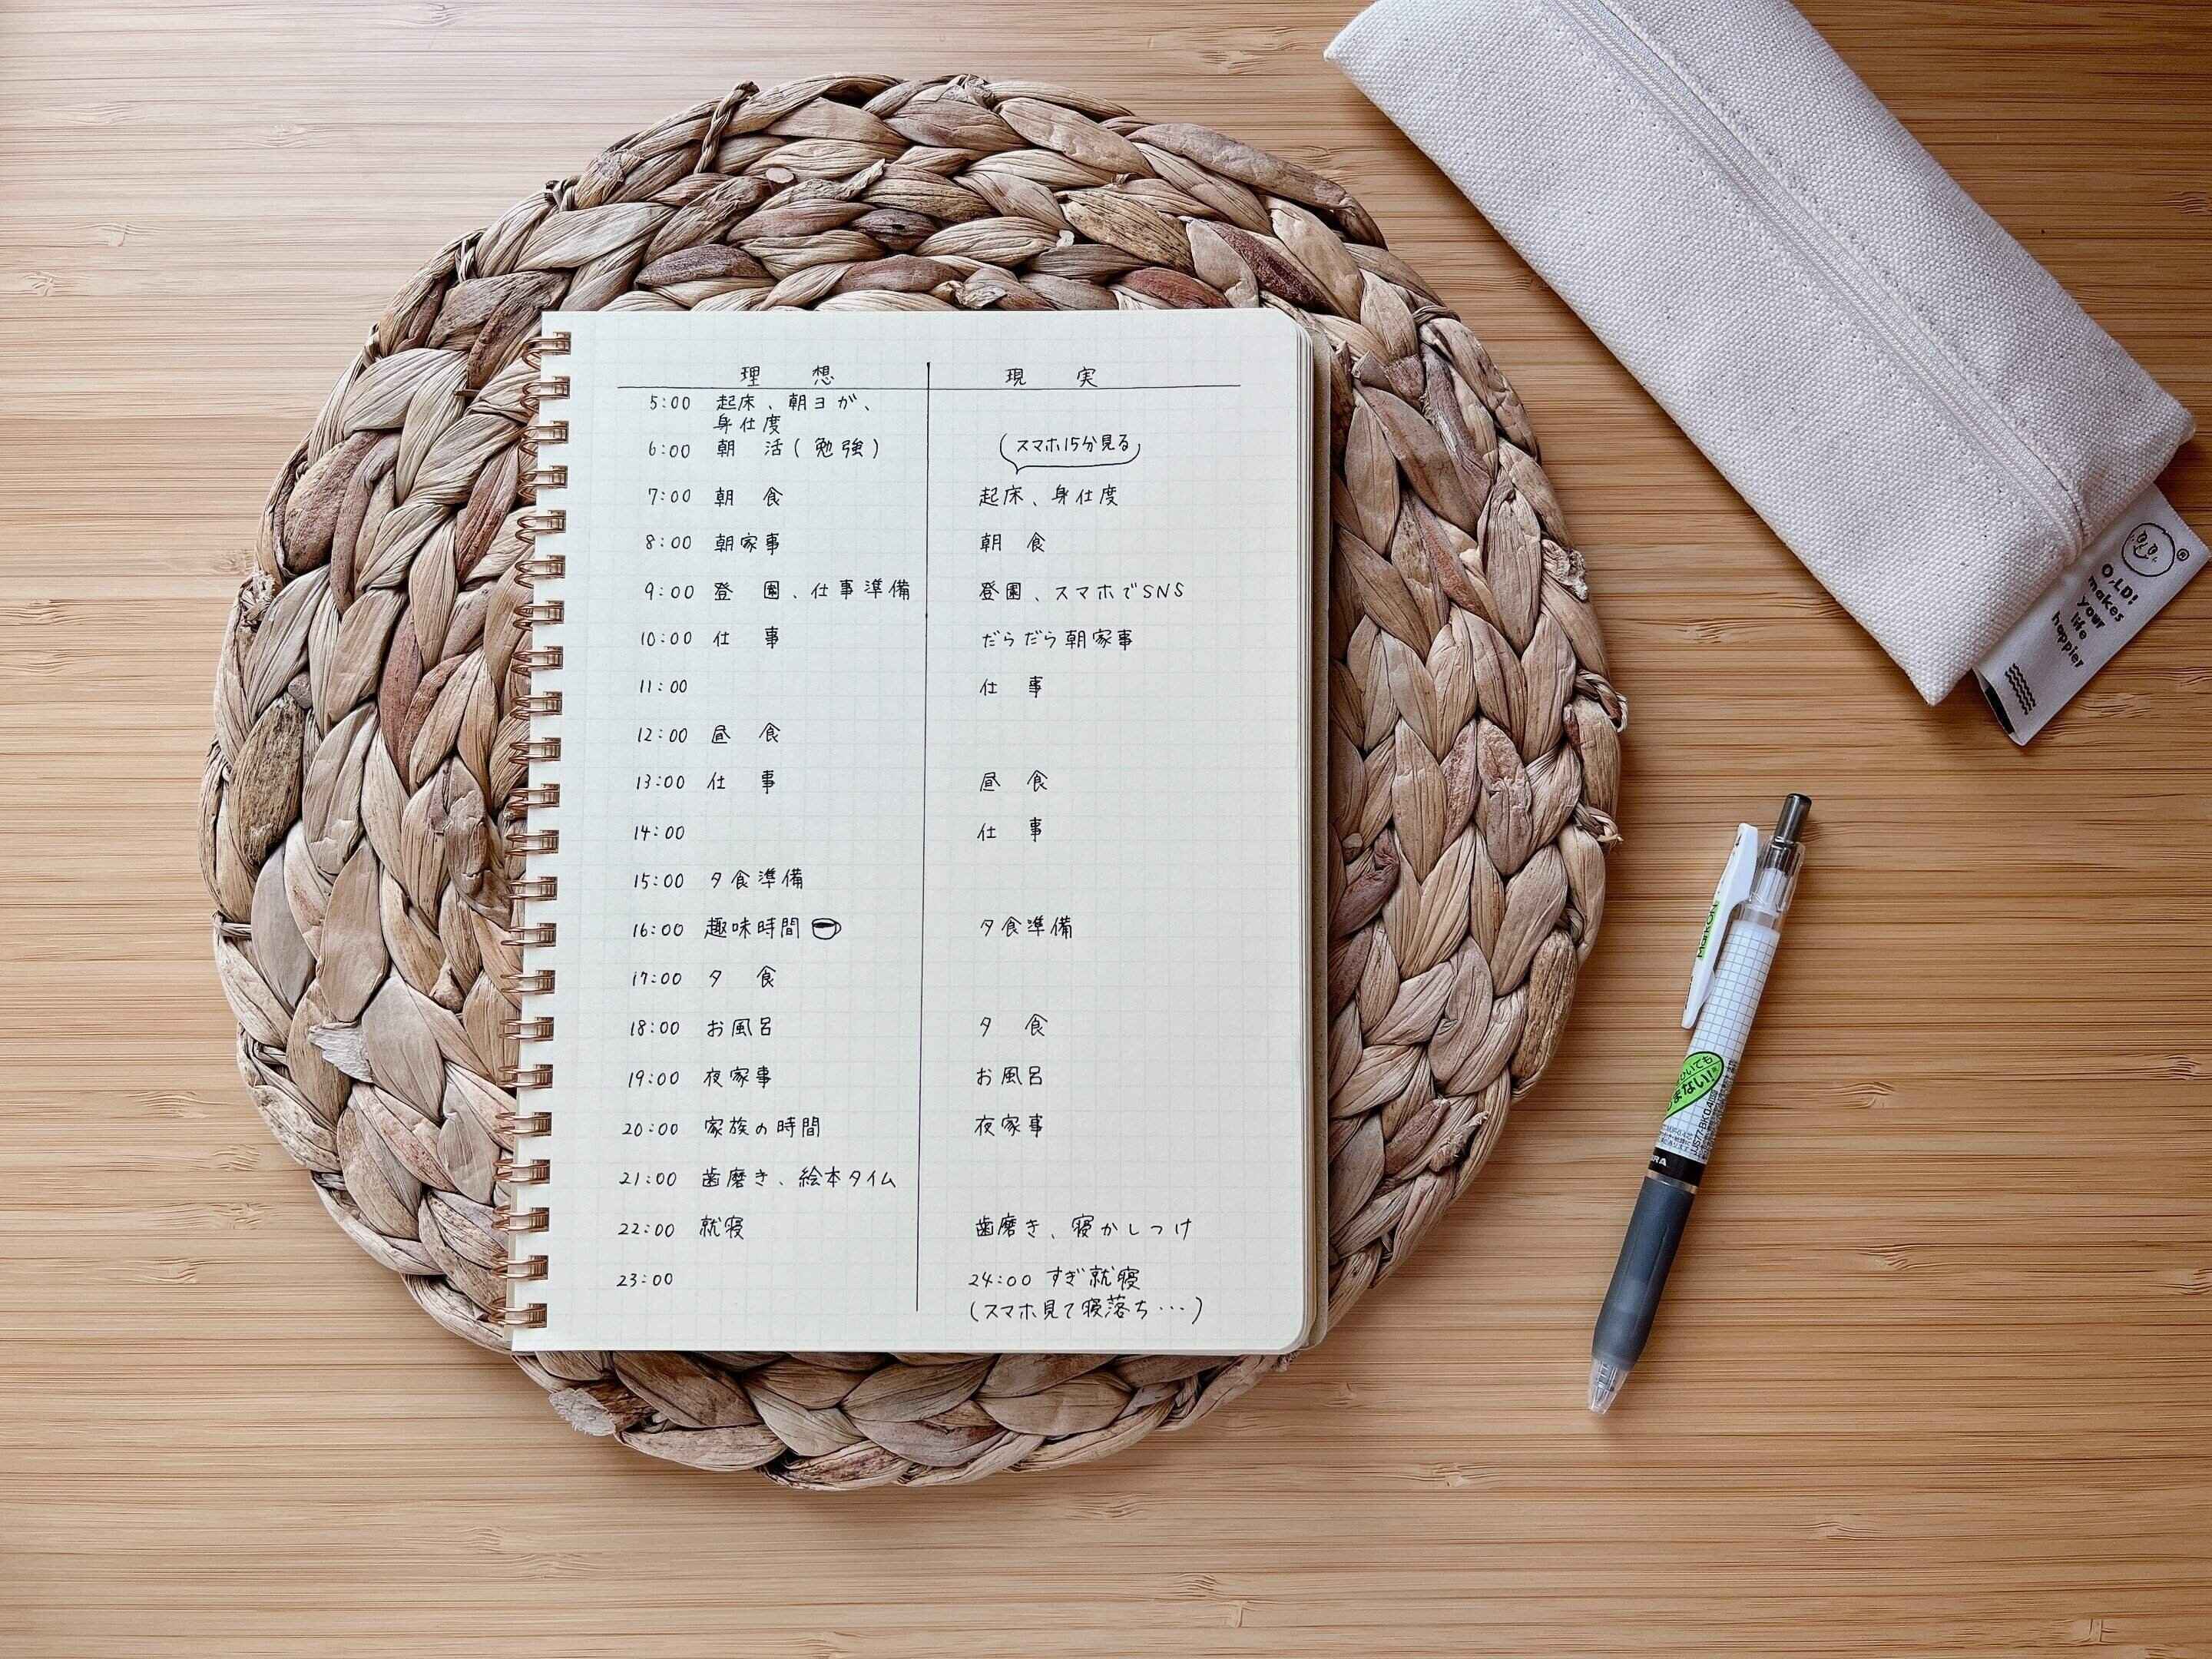 理想 現実
5:00 起床、朝ヨガ、
身仕度
6:00 朝活(勉強) (スマホ15分見る)
7:00 朝食 起床、身仕度
8:00 朝家事 朝食
9:00 登園、仕事準備 登園、スマホでSNS
10:00 仕事 だらだら朝家事
11:00 仕事
12:00 昼食
13:00 仕事 昼食
14:00 仕事
15:00 夕食準備
16:00 趣味時間 夕食準備
17:00 夕食
18:00 お風呂 夕食
19:00 夜家事 お風呂
20:00 家族の時間 夜家事
21:00 歯磨き、絵本タイム
22:00 就寝 歯磨き、寝かしつけ
23:00 24:00 すぎ就寝
(スマホ見て寝落ち…)
O,LD!
makes
your
life
happier
MarkOn